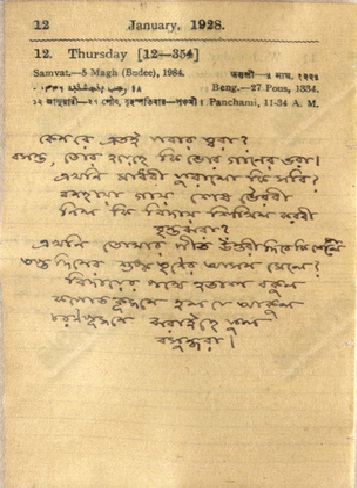 12 January, 1928.
12. Thursday [12—354]
Samvat.—5 Magh (Badee), 1984.
Beng.—27 Pous, 1334.
১২ জানুয়ারী—২৭ পৌষ, বৃহস্পতিবার—পঞ্চমী। Panchami, 11-34 A. M.
কেন রে এতই যাবার ত্বরা?
বসন্ত, তোর হয়েছে কি ভোর গানের ভরা।
এখনি মাধবী ফুরালো কি সবি?
বনছায়া গায় শেষ ভৈরবী
নিল কি বিদায় শিথিল করবী
বৃন্তঝরা?
এখনি তোমার পীত উত্তরী দিবে কি ফেলে
তপ্ত দিনের শুষ্ক তৃণের আসন মেলে?
বিদায়ের পথে হতাশ বকুল
কপোত কূজনে হল যে আকুল
চরণপূজনে ঝরাইছে ফুল
বসুন্ধরা।